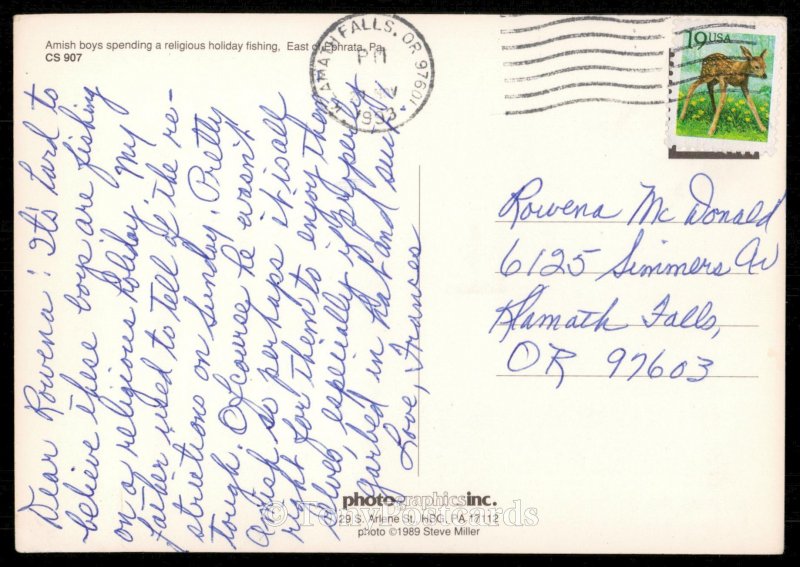 Amish boys spending a religious holiday fishing, East of Ephrata, Pa.
CS 907
KLAMATH FALLS, OR 97601
PM
1993
19 USA
Dear Rowena: It's hard to
believe these boys are fishing
on a religious holiday. My
father used to tell of the re-
strictions on Sunday. Pretty
tough. Of course he wasn't
Amish so perhaps it is all
right for them to enjoy them
selves, especially if properly
garbed in hat and such
Love, Frances
Rowena McDonald
6125 Simmers Av
Klamath Falls,
OR 97603
photographics inc.
29 S. Arlene St., HBG, PA 17112
photo ©1989 Steve Miller
© TonyPostcards